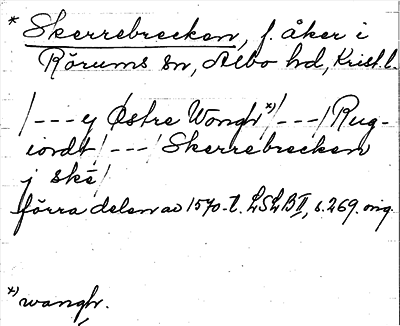 * Skerrebrecken, f. åker i
Rörums sn, Albo hd, Krist. l.
/---y Østre Wongr*)/---/Rug-
iordt/---/Skerrebrecken
j ske/
förra delen av 1570-t. LSLB II, s. 269. orig.
*) wangr.